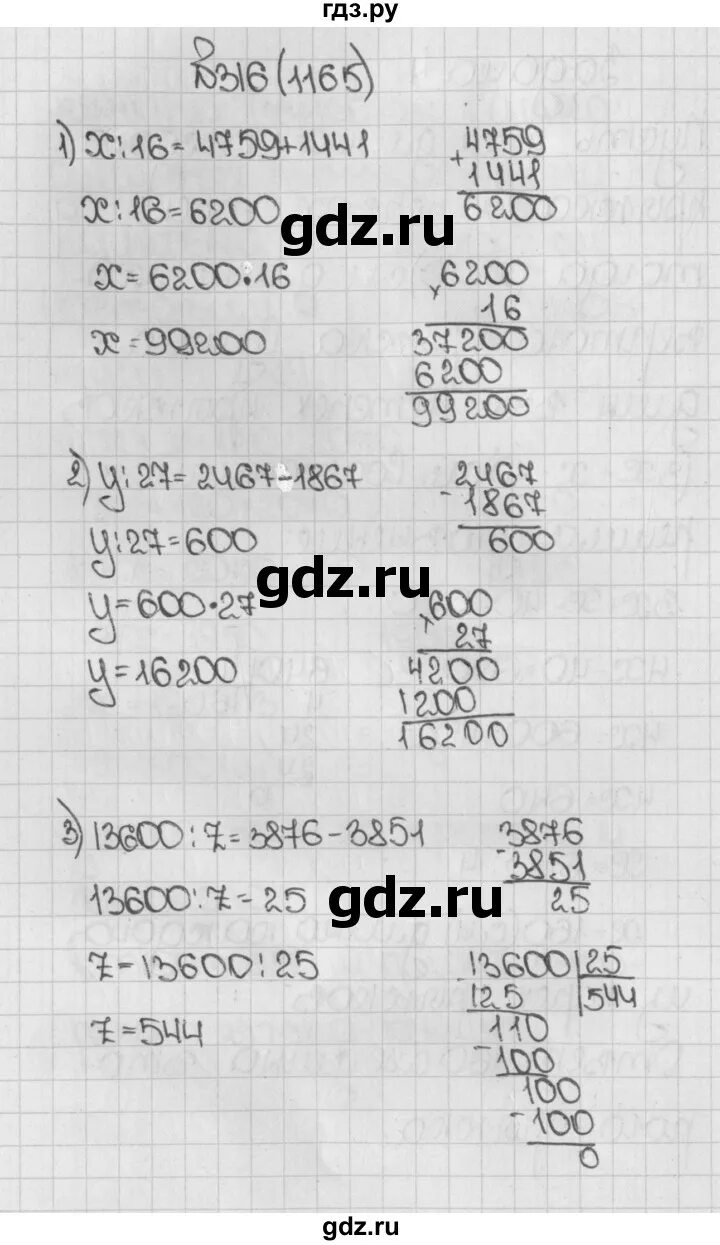 гдз.ру
№316 (1165)
1) x:16=4759+1441
x:16=6200
x=6200·16
x=99200
+4759
1441
6200
×6200
16
37200
6200
99200
gdz.ru
2) y:27=2467-1867
y:27=600
y=600·27
y=16200
-2467
1867
600
×600
27
4200
1200
16200
gdz.ru
3) 13600:z=3876-3851
13600:z=25
z=13600:25
z=544
-3876
3851
25
-13600|25
125 |544
110
-100
100
-100
0
gdz.ru
gdz.ru